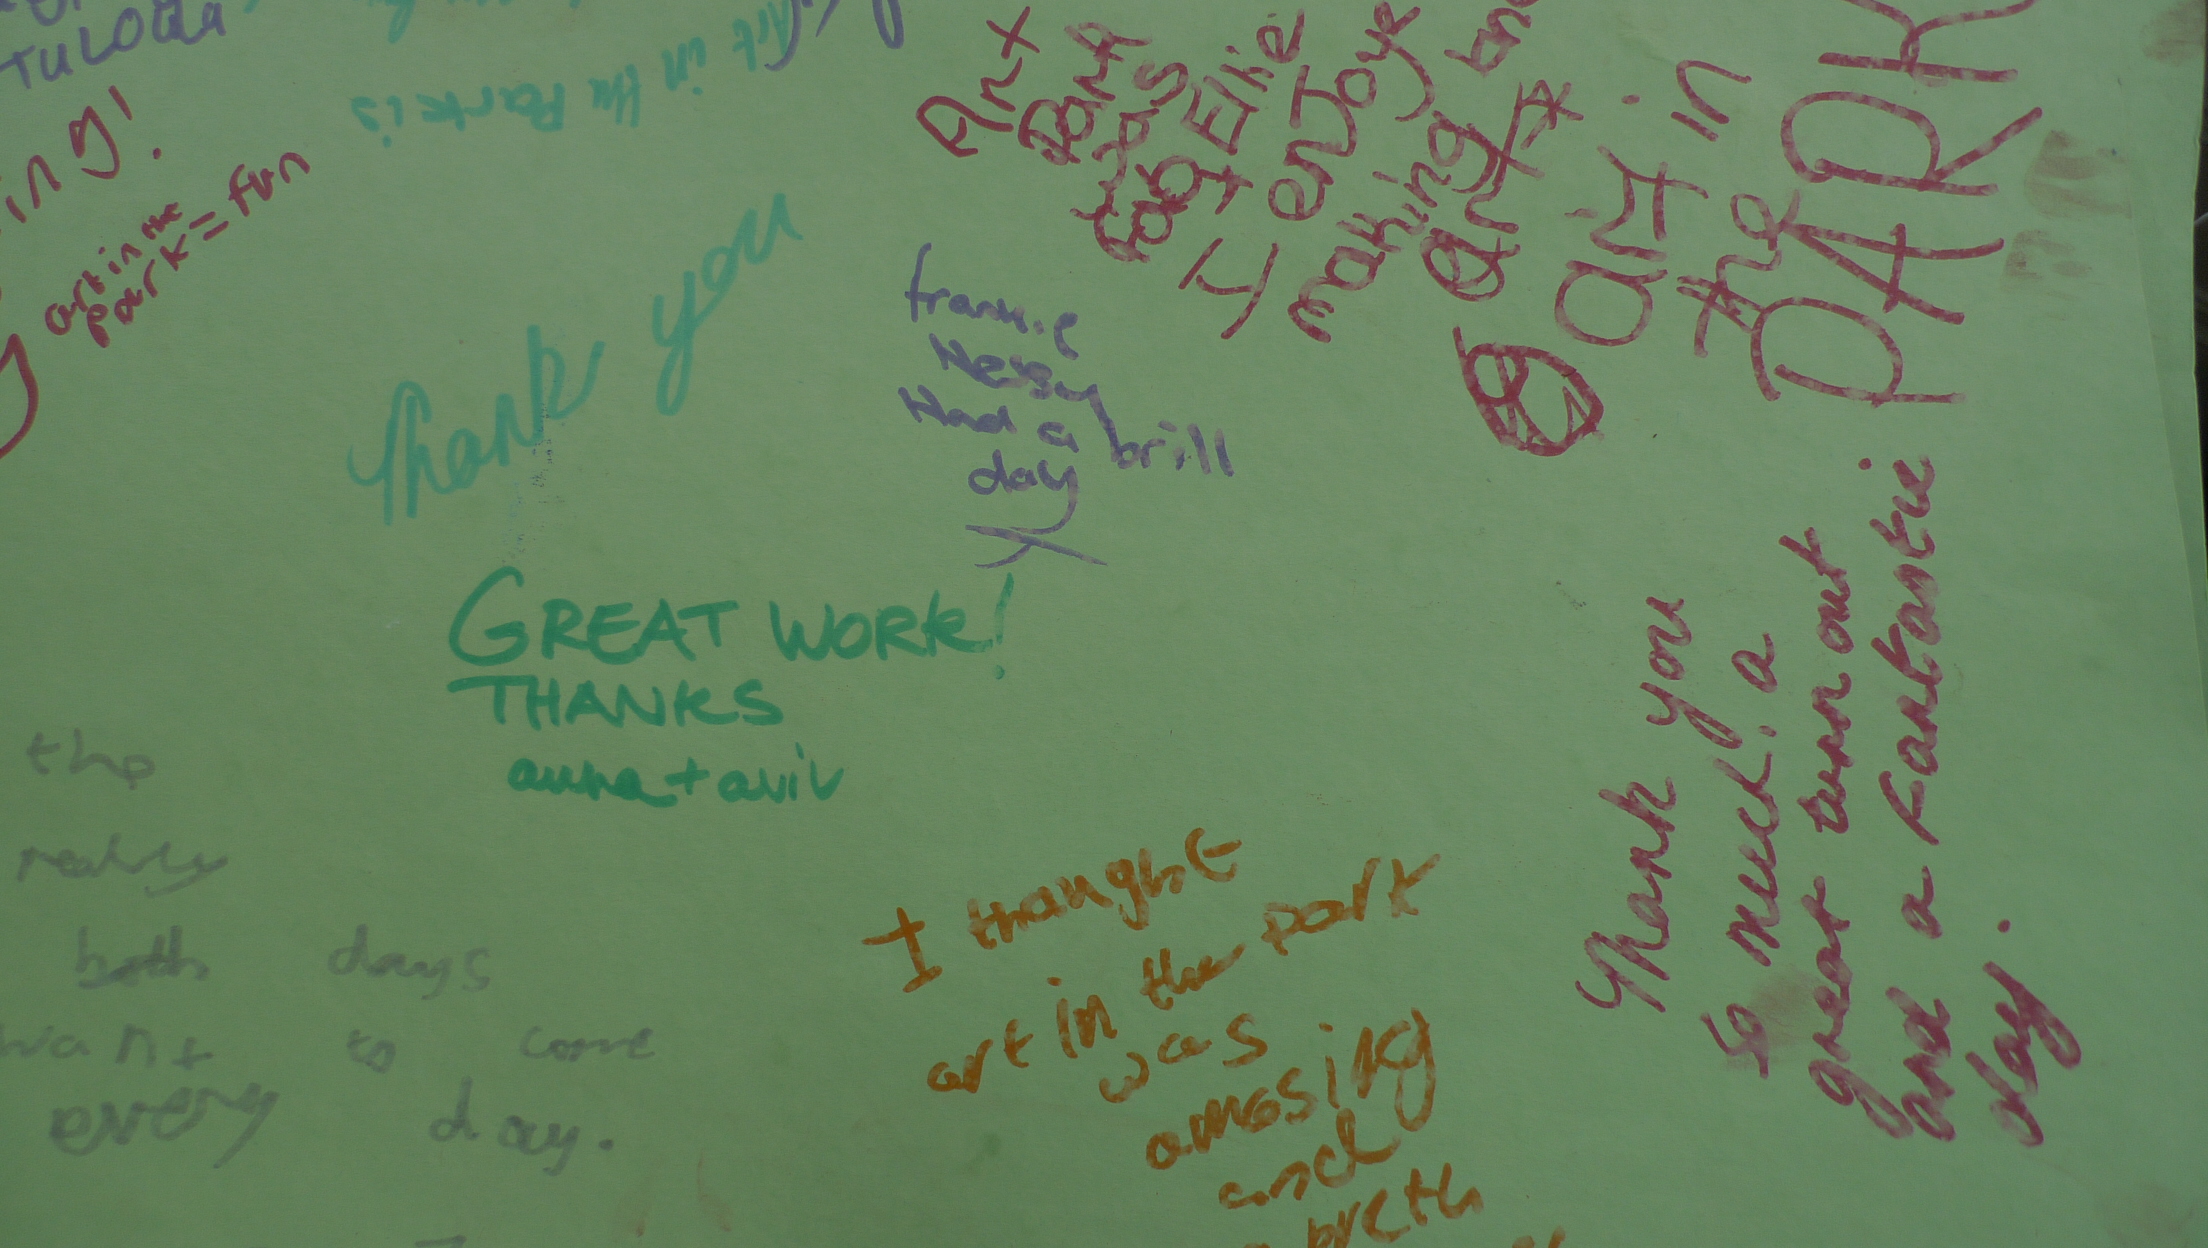 TULOUla
ing!
art in the
park = fun
Art in
the Park is
Thank you
frankie
Messy
Had a brill
day
X
Art
Park
was
fab
+ Ellie
I enjoye
making
art
art in
the
PARK
GREAT WORK!
THANKS
anna + aviv
Thank you
So much! a
great turn out
and a Fantastic
day.
the
really
both days
want to come
every day.
I thought
art in the park
was
amosing
and
breth